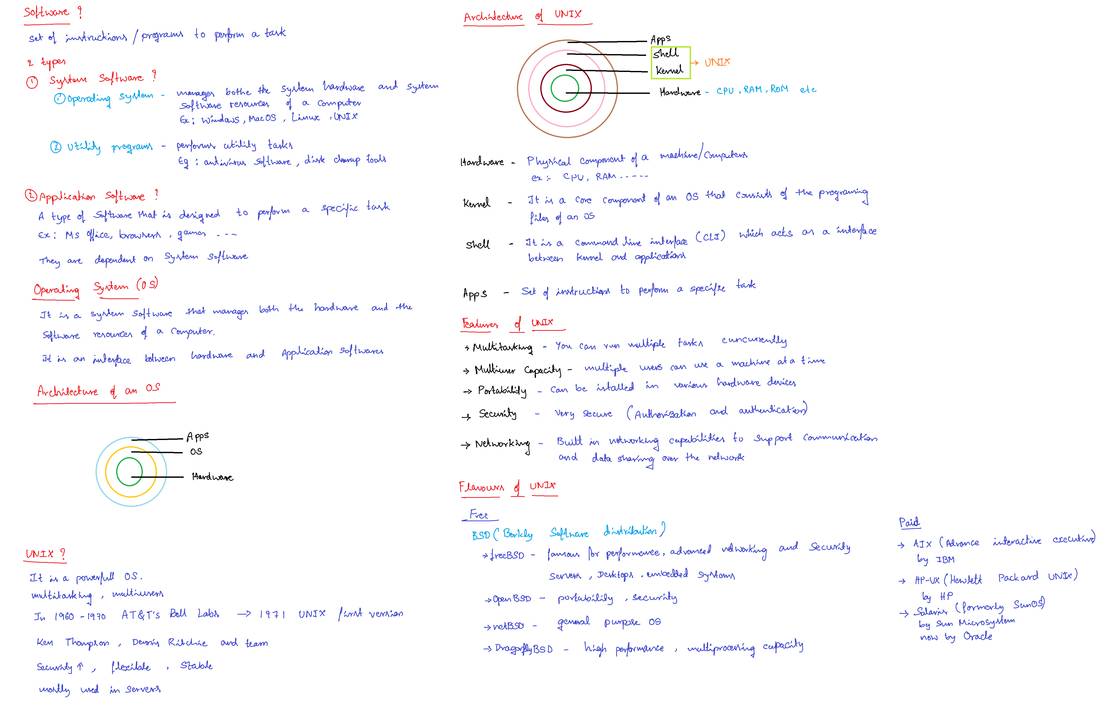 Software ?
Set of instructions / programs to perform a task
2 types
① System Software ?
① Operating system - manages bothe the system hardware and system
software resources of a computer
Ex: Windows, MacOS, Linux, UNIX
② Utility programs - performs utility tasks
Eg: antivirus software, disk cleanup tools
② Application Software ?
A type of software that is designed to perform a specific task
Ex: MS office, browsers, games ---
They are dependent on System software
Operating System (OS)
It is a system software that manages both the hardware and the
software resources of a computer.
It is an interface between hardware and Application softwares
Architecture of an OS
Apps
OS
Hardware
UNIX ?
It is a powerfull OS.
multitasking, multiusers
In 1960 - 1970 AT&T's Bell Labs → 1971 UNIX first version
Ken Thompson, Dennis Ritchie and team
Security ↑, flexible, Stable
mostly used in servers
Architecture of UNIX
Apps
Shell
Kernel
→ UNIX
Hardware - CPU, RAM, ROM etc
Hardware - Physical component of a machine/computers
ex:- CPU, RAM -----
Kernel - It is a core component of an OS that consists of the programing
files of an OS
Shell - It is a command line interface (CLI) which acts as a interface
between kernel and applications
Apps - Set of instructions to perform a specific task
Features of UNIX
→ Multitasking - You can run multiple tasks cuncurrently
→ Multiuser Capacity - multiple users can use a machine at a time
→ Portability - Can be istalled in various hardware devices
→ Security - Very secure (Authorisation and authentication)
→ Networking - Built in networking capabilities to support communication
and data sharing over the network
Flavours of UNIX
Free
BSD (Berkly Software distribution)
→ freeBSD - famous for performance, advanced networking and security
servers, Desktops, embedded systems
→ OpenBSD - portability, security
→ netBSD - general purpose OS
→ DragonflyBSD - high performance, multiprocessing capacity
Paid
→ AIX (Advance interactive executive)
by IBM
→ HP-UX (Hewlett Packard UNIX)
by HP
→ Solaris (formerly SunOS)
by Sun MicroSystem
now by Oracle